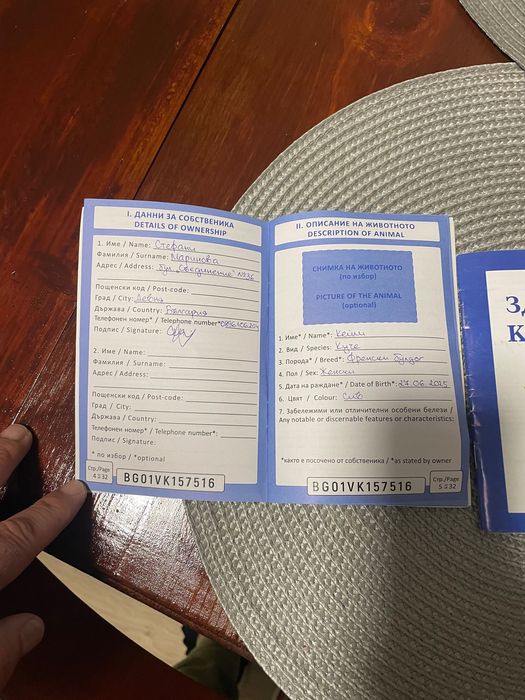 I. ДАННИ ЗА СОБСТВЕНИКА
DETAILS OF OWNERSHIP
1. Име / Name: Стефани
Фамилия / Surname: Маринова
Адрес / Address: бул. "Съединение" №36
Пощенски код / Post-code:
Град / City: Девня
Държава / Country: България
Телефонен номер* / Telephone number*
Подпис / Signature:
2. Име / Name:
Фамилия / Surname:
Адрес / Address:
Пощенски код / Post-code:
Град / City:
Държава / Country:
Телефонен номер* / Telephone number*:
Подпис / Signature:
* по избор / *optional
Стр./Page
4 от 32
BG01VK157516
II. ОПИСАНИЕ НА ЖИВОТНОТО
DESCRIPTION OF ANIMAL
СНИМКА НА ЖИВОТНОТО
(по избор)
PICTURE OF THE ANIMAL
(optional)
1. Име* / Name*: Кейли
2. Вид / Species: Куче
3. Порода* / Breed*: Френски булдог
4. Пол / Sex: Женски
5. Дата на раждане* / Date of Birth*: 27.06.2025
6. Цвят / Colour: Сив
7. Забележими или отличителни особени белези /
Any notable or discernable features or characteristics:
*както е посочено от собственика / *as stated by owner
BG01VK157516
Стр./Page
5 от 32
ЗД
К